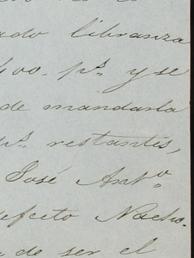 ado libranza
400. p.s y se
de mandarla
p.s restantes,
José Ant.o
efecto Nacho.
de ser el